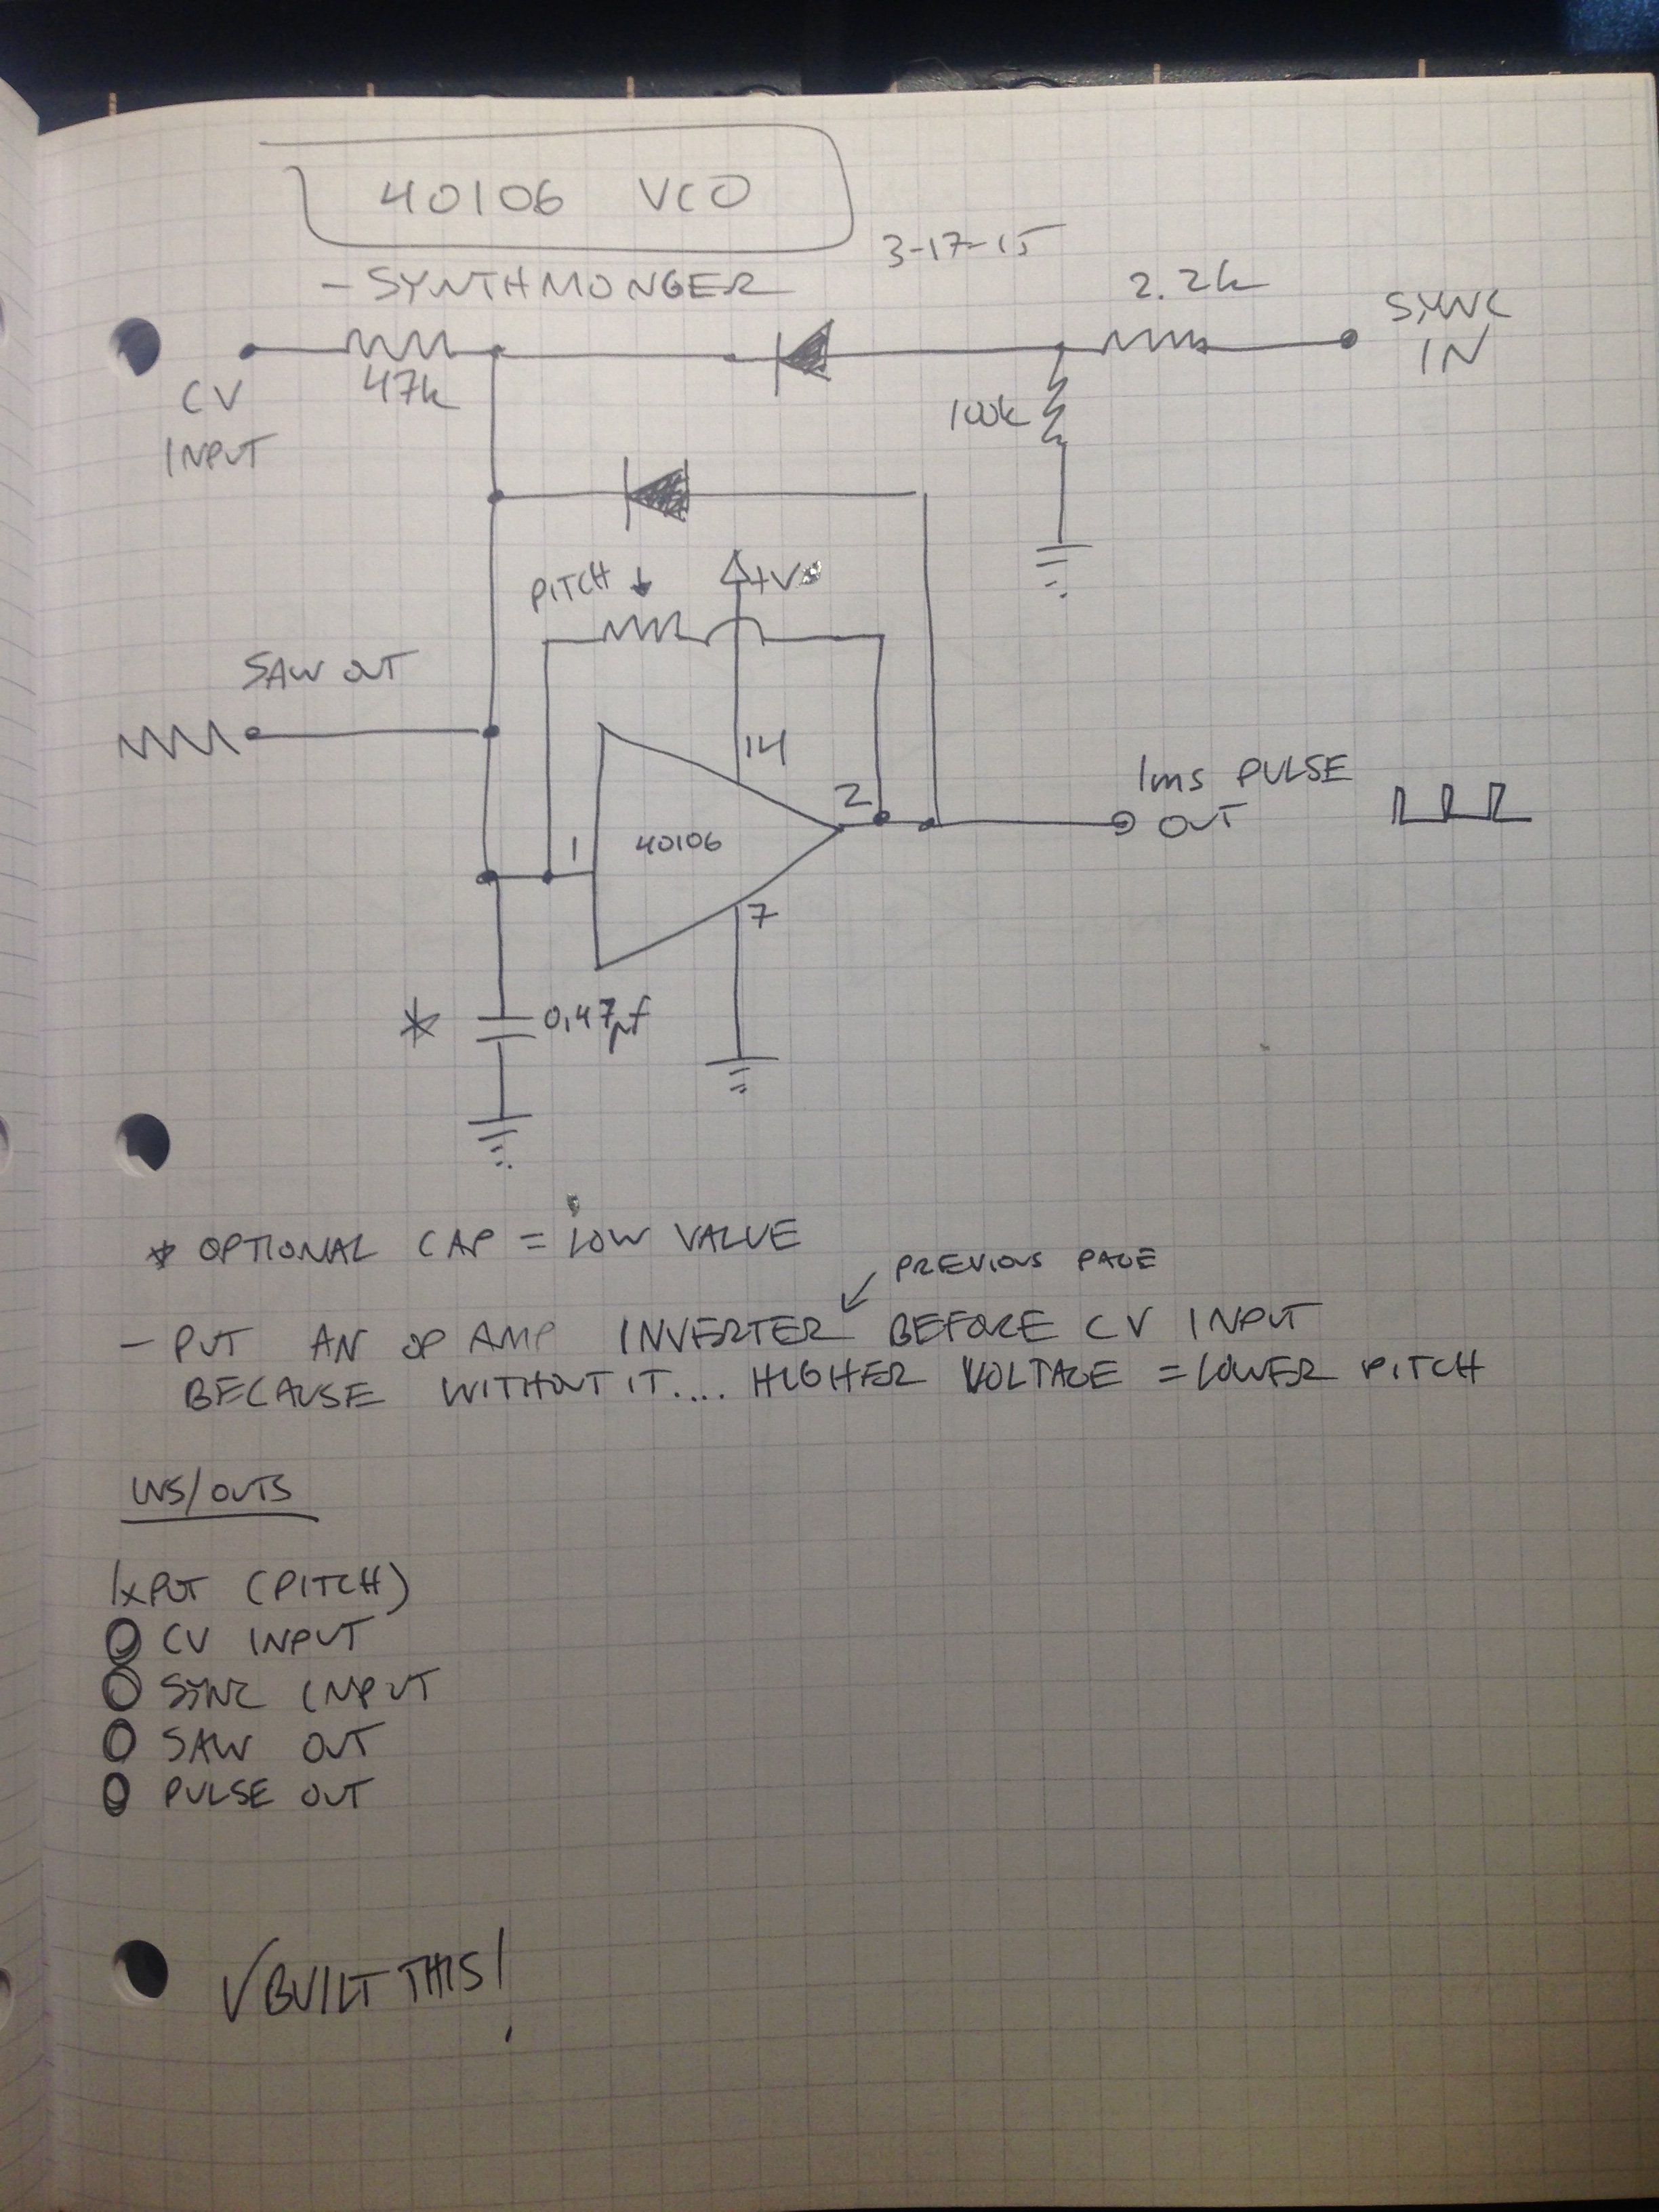 40106 VCO
3-17-15
- SYNTHMONGER
2.2k
SYNC
IN
47k
CV
INPUT
100k
PITCH
+V
SAW OUT
14
1ms PULSE
OUT
2
1
40106
7
* 0.47µf
* OPTIONAL CAP = LOW VALUE
PREVIOUS PAGE
- PUT AN OP AMP INVERTER BEFORE CV INPUT
BECAUSE WITHOUT IT.... HIGHER VOLTAGE = LOWER PITCH
INS/OUTS
1xPOT (PITCH)
CV INPUT
SYNC INPUT
SAW OUT
PULSE OUT
√BUILT THIS!